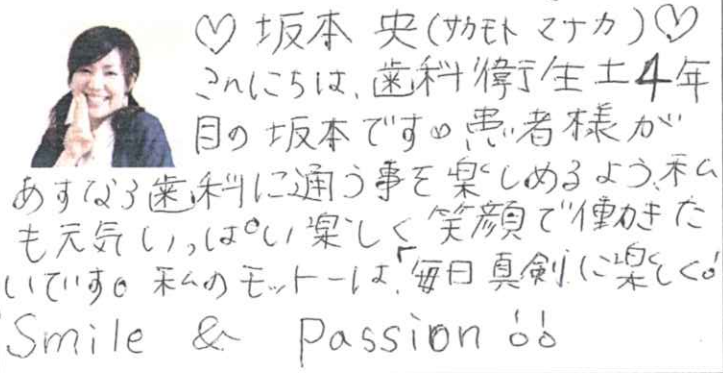 ♡ 坂本 央(サカモト マナカ)♡
こんにちは、歯科衛生士4年
目の坂本です。患者様が
あすなろ歯科に通う事を楽しめるよう、私
も元気いっぱい楽しく笑顔で働きた
いです。私のモットーは、「毎日真剣に楽しく!
Smile & Passion !!